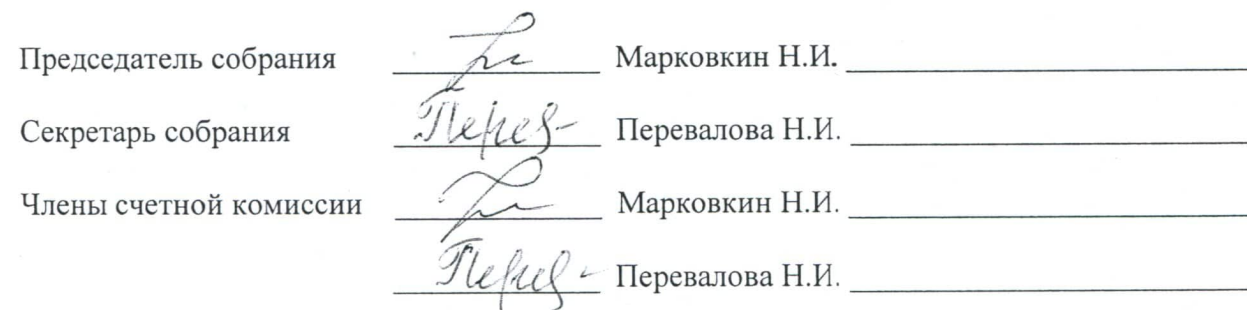 Председатель собрания Марковкин Н.И.
Секретарь собрания Перев- Перевалова Н.И.
Члены счетной комиссии Марковкин Н.И.
Перев- Перевалова Н.И.